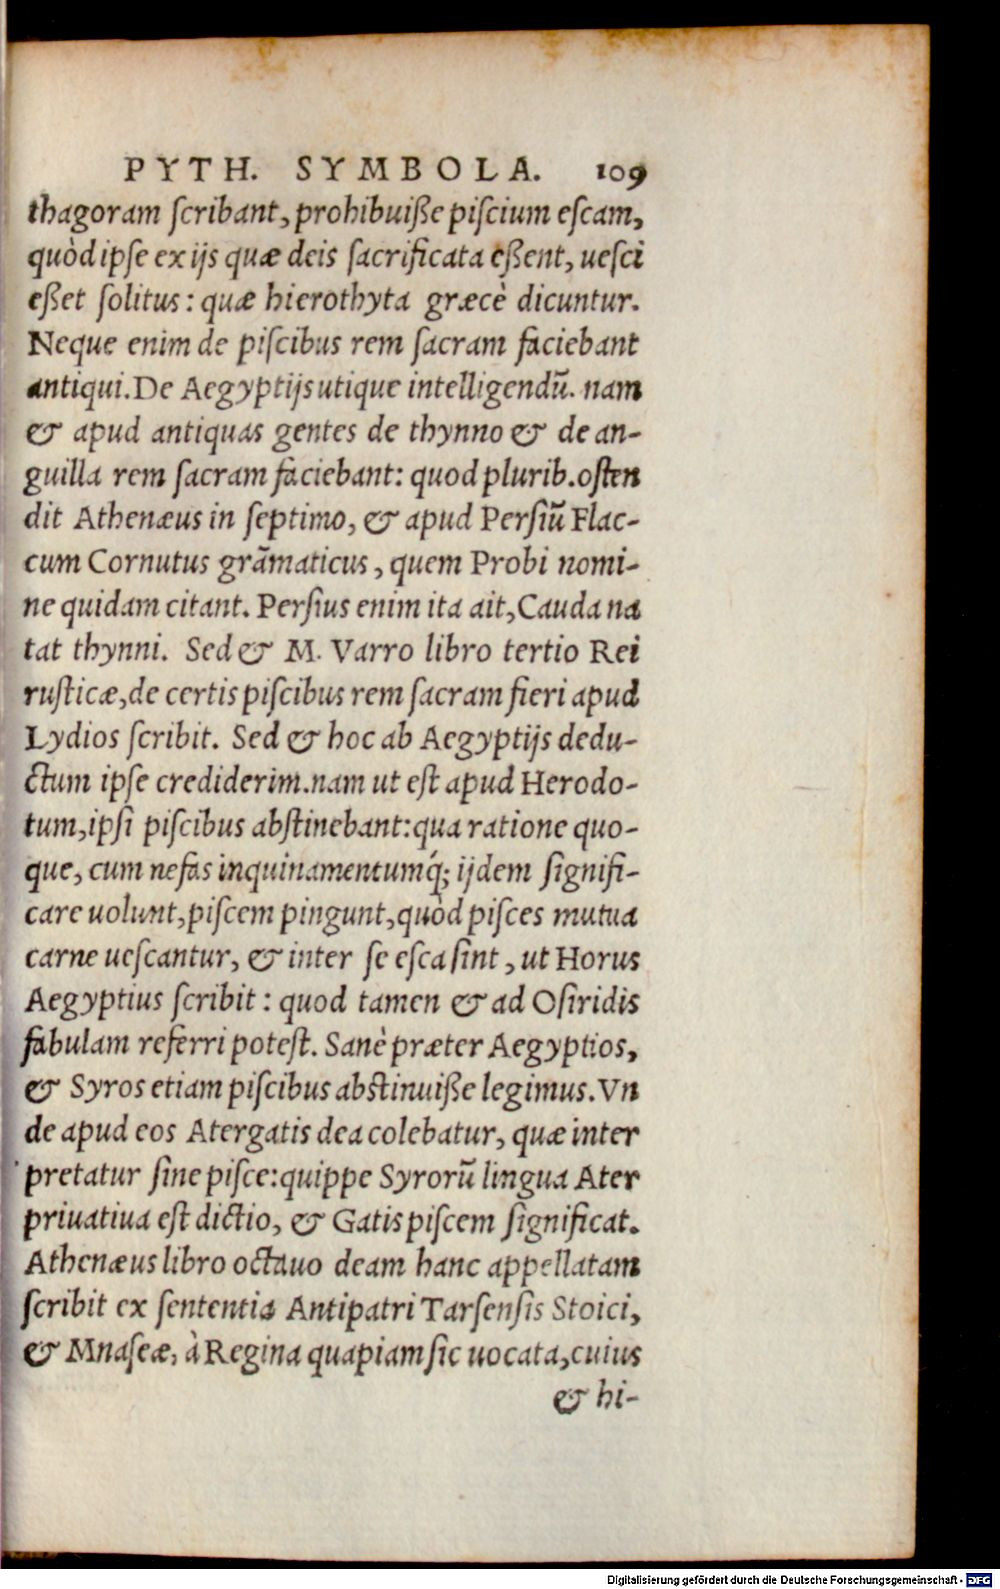 PYTH. SYMBOLA. 109
thagoram ſcribant, prohibuiße piſcium eſcam,
quòd ipſe ex ijs quæ deis ſacrificata eßent, ueſci
eßet ſolitus: quæ hierothyta græcè dicuntur.
Neque enim de piſcibus rem ſacram faciebant
antiqui. De Aegyptijs utique intelligendũ. nam
& apud antiquas gentes de thynno & de an-
guilla rem ſacram faciebant: quod plurib. oſten
dit Athenæus in ſeptimo, & apud Perſiũ Flac-
cum Cornutus grãmaticus, quem Probi nomi-
ne quidam citant. Perſius enim ita ait, Cauda na
tat thynni. Sed & M. Varro libro tertio Rei
ruſticæ, de certis piſcibus rem ſacram fieri apud
Lydios ſcribit. Sed & hoc ab Aegyptijs dedu-
ctum ipſe crediderim. nam ut eſt apud Herodo-
tum, ipſi piſcibus abſtinebant: qua ratione quo-
que, cum nefas inquinamentumq́; ijdem ſignifi-
care uolunt, piſcem pingunt, quòd piſces mutua
carne ueſcantur, & inter ſe eſca ſint, ut Horus
Aegyptius ſcribit: quod tamen & ad Oſiridis
fabulam referri poteſt. Sanè præter Aegyptios,
& Syros etiam piſcibus abſtinuiße legimus. Vn
de apud eos Atergatis dea colebatur, quæ inter
pretatur ſine piſce: quippe Syrorũ lingua Ater
priuatiua eſt dictio, & Gatis piſcem ſignificat.
Athenæus libro octauo deam hanc appellatam
ſcribit ex ſententia Antipatri Tarſenſis Stoici,
& Mnaſeæ, à Regina quapiam ſic uocata, cuius
& hi-
Digitalisierung gefördert durch die Deutsche Forschungsgemeinschaft - DFG